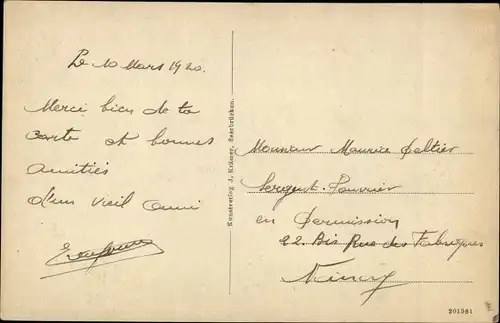 Le 10 Mars 1920.
Merci bien de ta
carte et bonnes
amitiés
d'un vieil ami
Kunstverlag J. Krämer, Saarbrücken.
Monsieur Maurice Peltier
Sergent-Fourrier
en Permission
22 Bis Rue des Fabriques
Nancy
201581